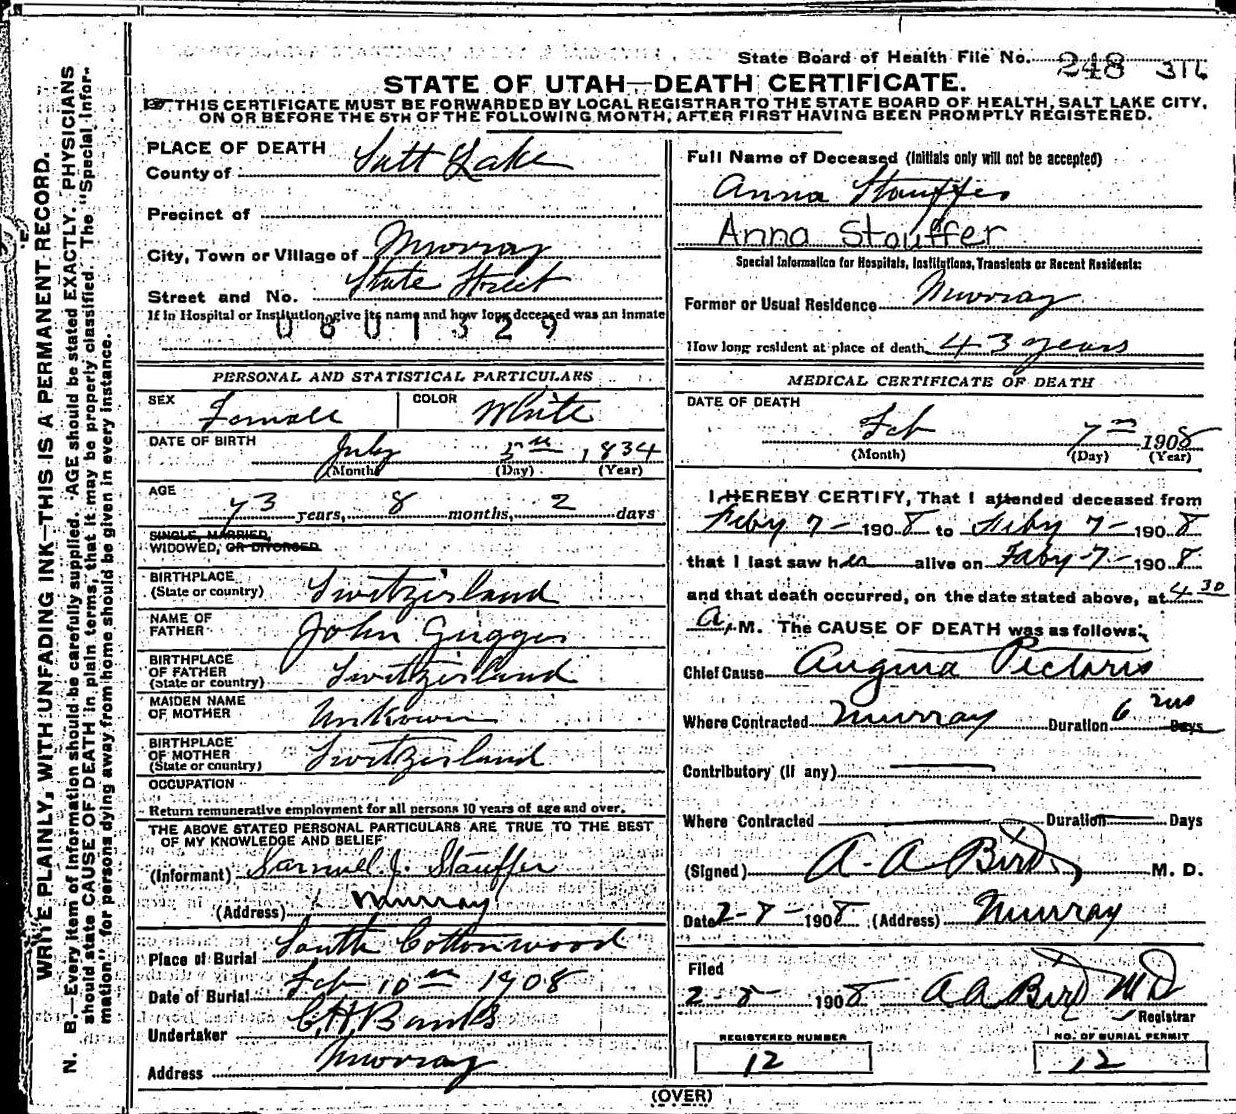 State Board of Health File No. 248 316
STATE OF UTAH—DEATH CERTIFICATE.
☞ THIS CERTIFICATE MUST BE FORWARDED BY LOCAL REGISTRAR TO THE STATE BOARD OF HEALTH, SALT LAKE CITY,
ON OR BEFORE THE 5TH OF THE FOLLOWING MONTH, AFTER FIRST HAVING BEEN PROMPTLY REGISTERED.
WRITE PLAINLY, WITH UNFADING INK—THIS IS A PERMANENT RECORD.
N. B.—Every item of information should be carefully supplied. AGE should be stated EXACTLY. PHYSICIANS
should state CAUSE OF DEATH in plain terms, that it may be properly classified. The "Special Infor-
mation" for persons dying away from home should be given in every instance.
PLACE OF DEATH
County of Salt Lake
Precinct of
City, Town or Village of Murray
Street and No. State Street
If in Hospital or Institution, give its name and how long deceased was an inmate
0801329
PERSONAL AND STATISTICAL PARTICULARS
SEX Female COLOR White
DATE OF BIRTH July 5th 1834
(Month) (Day) (Year)
AGE
73 years, 8 months, 2 days
SINGLE, MARRIED,
WIDOWED, OR DIVORCED
BIRTHPLACE
(State or country) Switzerland
NAME OF
FATHER John Gugger
BIRTHPLACE
OF FATHER
(State or country) Switzerland
MAIDEN NAME
OF MOTHER Unkown
BIRTHPLACE
OF MOTHER
(State or country) Switzerland
OCCUPATION
Return remunerative employment for all persons 10 years of age and over.
THE ABOVE STATED PERSONAL PARTICULARS ARE TRUE TO THE BEST
OF MY KNOWLEDGE AND BELIEF
(Informant) Samuel J. Stauffer
(Address) Murray
Place of Burial South Cottonwood
Date of Burial Feb 10th 1908
Undertaker C.H. Banks
Address Murray
Full Name of Deceased (Initials only will not be accepted)
Anna Stauffer
Anna Stouffer
Special Information for Hospitals, Institutions, Transients or Recent Residents:
Former or Usual Residence Murray
How long resident at place of death 43 years
MEDICAL CERTIFICATE OF DEATH
DATE OF DEATH
Feb 7th 1908
(Month) (Day) (Year)
I HEREBY CERTIFY, That I attended deceased from
Feby 7- 1908 to Feby 7- 1908
that I last saw her alive on Feby 7- 1908
and that death occurred, on the date stated above, at 4 30
A. M. The CAUSE OF DEATH was as follows:
Chief Cause Augina Pectoris
Where Contracted Murray Duration 6 mo Days
Contributory (if any)
Where Contracted Duration Days
(Signed) A. A Bird M. D.
Date 2-8-1908 (Address) Murray
Filed
2-8- 1908 A A Bird MD
Registrar
REGISTERED NUMBER
12
NO. OF BURIAL PERMIT
12
(OVER)